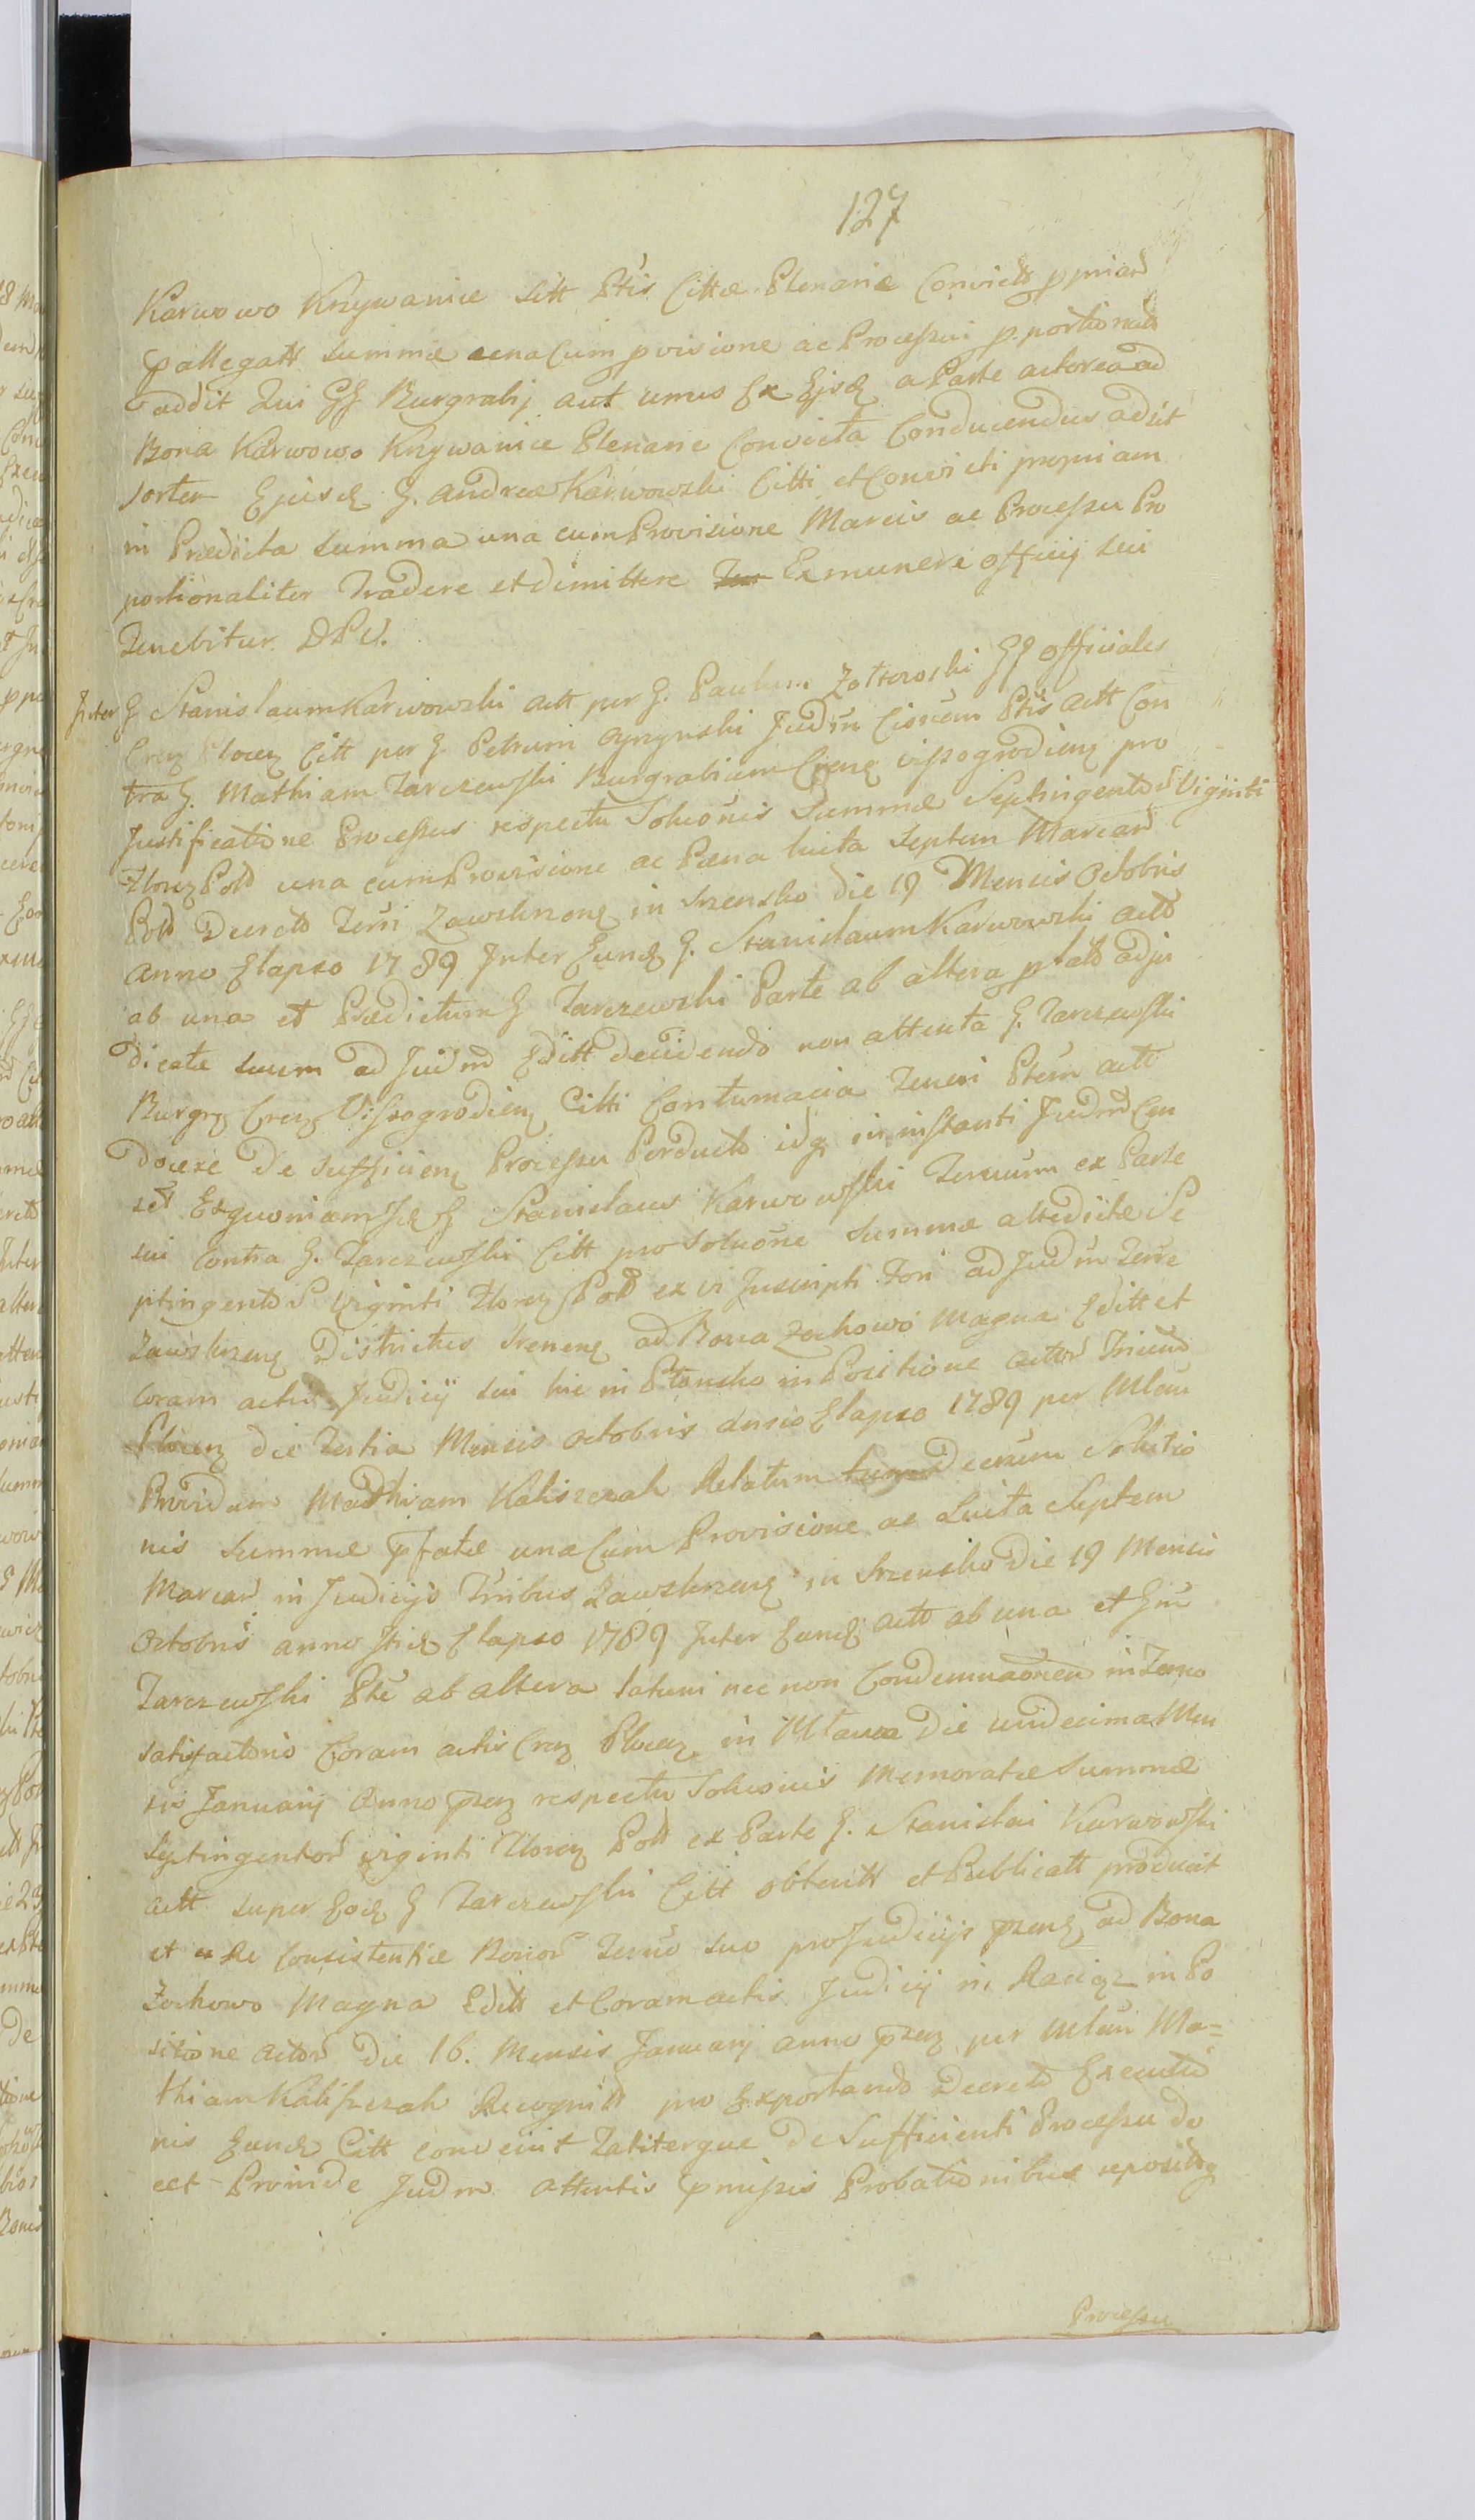 127
Karwowo Krzywanice sitt Ptis Cittæ Plenarie Convictt ppriam
pallegatt summæ una Cum pvisione ac Processui p.portionatt
addit Qui GG Burgrabij aut unus Ex Ejsd a Parte actorea ad
Bona Karwowo Krzywanice Plenarie Convicta Conducendus adsit
sortem Ejusd G. Andreæ Karwowski Citti et Convicti propriam
in Prædicta summa una cum Provisione Marcis ac Processu Pro
portionaliter Tradere et dimittere Ex munere officij sui
Tenebitur DPU.
Inter G Stanislaum Karwowski Actt per G. Paulum GG officiales
Cren Plocen Citt per G. Petrum Judm Ptis Actt Con
tra G. Mathiam Tarczewski Burgrabium Crens Vissogrodiens pro
Justificatione Processus respectu Soluonis Summæ Septingentor Viginti
Floren Poll una cum Provisione ac Pæna luita Septem Marcar
Poll Decreto Terri Zawskrzens in Szrensko die 19 Mensis Octobris
Anno Elapso 1789 Inter Eund G. Stanislaum Karwowski Actt
ab una et Prædictum G Tarczewski Parte ab altera plato adju
dicatæ suum ad Judm Editt decidendo non attenta G. Tarczewski
Burgrz Crens Vissogrodiens Citti Contumacia Teneri Ptem Actt
docere De sufficien Processu Perducto idq in instanti Judm Cen
set Et quoniam Id G Stanislaus Karwowski Terminum ex Parte
sui Contra G. Tarczewski Citt pro Soluone summæ attedictæ Se
ptingentor Viginti Floren Poll ex vi Inscripti Fori ad Judm Terre
Zawskrzens Districtus Srenens ad Bona Zochowo Magna Editt et
Coram actis Judicij sui hic in Plonsko in Positione actor Trium
Plocen die Tertia Mensis Octobris Anno Elapso 1789 per Mlm
Providum Mathiam Kaliszczak Relatum Decretum Solutio
nis summæ pfatæ una Cum Provisione ac Luita Septem
Marcar in Judicijs Tribus Zawskrzens in Szrensko Die 19 Mensis
Octobris anno Elapso 1789 Inter Eund Actt ab una et Gm
Tarczewski Pte ab altera latum nec non Condemnaonem in Termo
satisfactorio Coram actis Cren Plocen in Mlawa Die undecima Men
sis Januarij Anno pzen respectu Soluonis Memoratæ Summæ
Septingentor viginti Floren Poll ex Parte G. Stanislai Karwowski
Actt super Eod G Tarczewski Citt obtentt et Publicatt producit
et a Re Consistentiæ Bonor Termo suo pro Judicijs pzens ad Bona
Zochowo Magna Editt et Coram actis Judicij in Raciąż in Po
sitione actor Die 16. Mensis Januarij anno pzen per Mlm Ma=
thiam Kaliszczak Recognitt pro Exportando Decreto Executio
nis Eund Citt convenit Taliterque De Sufficienti Processu do
cet Proinde Judm Attentis pmissis Probationibus repositoq
Processu